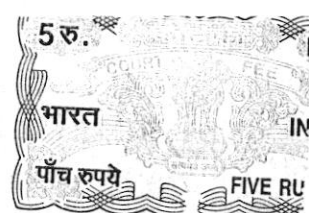 5 रु.
COURT FEE
भारत IN
पाँच रुपये FIVE RU